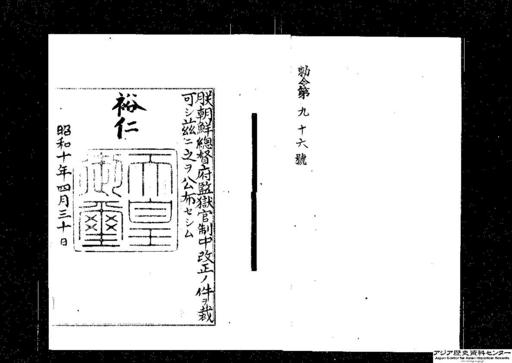 勅令第九十六號
朕朝鮮總督府監獄官制中改正ノ件ヲ裁
可シ茲ニ之ヲ公布セシム
裕仁
天皇
御璽
昭和十年四月三十日
アジア歴史資料センター
Japan Center for Asian Historical Records